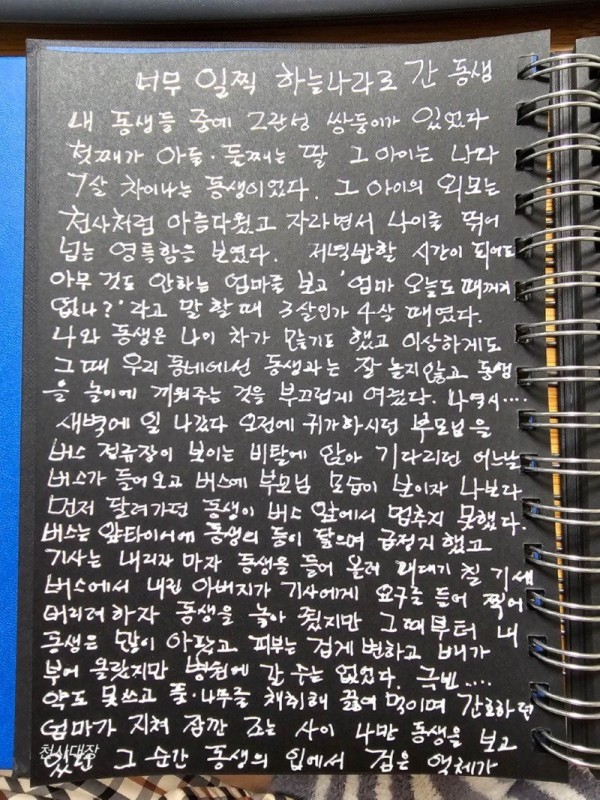 너무 일찍 하늘나라로 간 동생
내 동생들 중에 2란성 쌍둥이가 있었다
첫째가 아들·둘째는 딸 그 아이는 나와
7살 차이나는 동생이었다. 그 아이의 외모는
천사처럼 아름다웠고 자라면서 나이를 뛰어
넘는 영특함을 보였다. 저녁밥할 시간이 되어도
아무 것도 안하는 엄마를 보고 '엄마 오늘도 때꺼리
없나?'라고 말 할 때 3살인가 4살 때였다.
나와 동생은 나이 차가 많기도 했고 이상하게도
그때 우리 동네에선 동생과는 잘 놀지않고 동생
을 놀이에 끼워주는 것을 부끄럽게 여겼다. 나 역시....
새벽에 일 나갔다 오전에 귀가하시던 부모님을
버스 정류장이 보이는 비탈에 앉아 기다리던 어느날
버스가 들어오고 버스에 부모님 모습이 보이자 나보다
먼저 달려가던 동생이 버스 앞에서 멈추지 못했다.
버스는 앞타이어에 동생의 등이 닿으며 급정지 했고
기사는 내리자 마자 동생을 들어 올려 패대기 칠 기세
버스에서 내린 아버지가 기사에게 요구를 들어 찍어
버리려 하자 동생을 놓아 줬지만 그때부터 내
동생은 많이 아팠고 피부는 검게 변하고 배가
부어 올랐지만 병원에 갈 수는 없었다. 극빈....
약도 못쓰고 풀·나무를 채취해 끓여 먹이며 간호하던
엄마가 지쳐 잠깐 조는 사이 나만 동생을 보고
있던 그 순간 동생의 입에서 검은 액체가
천사대장